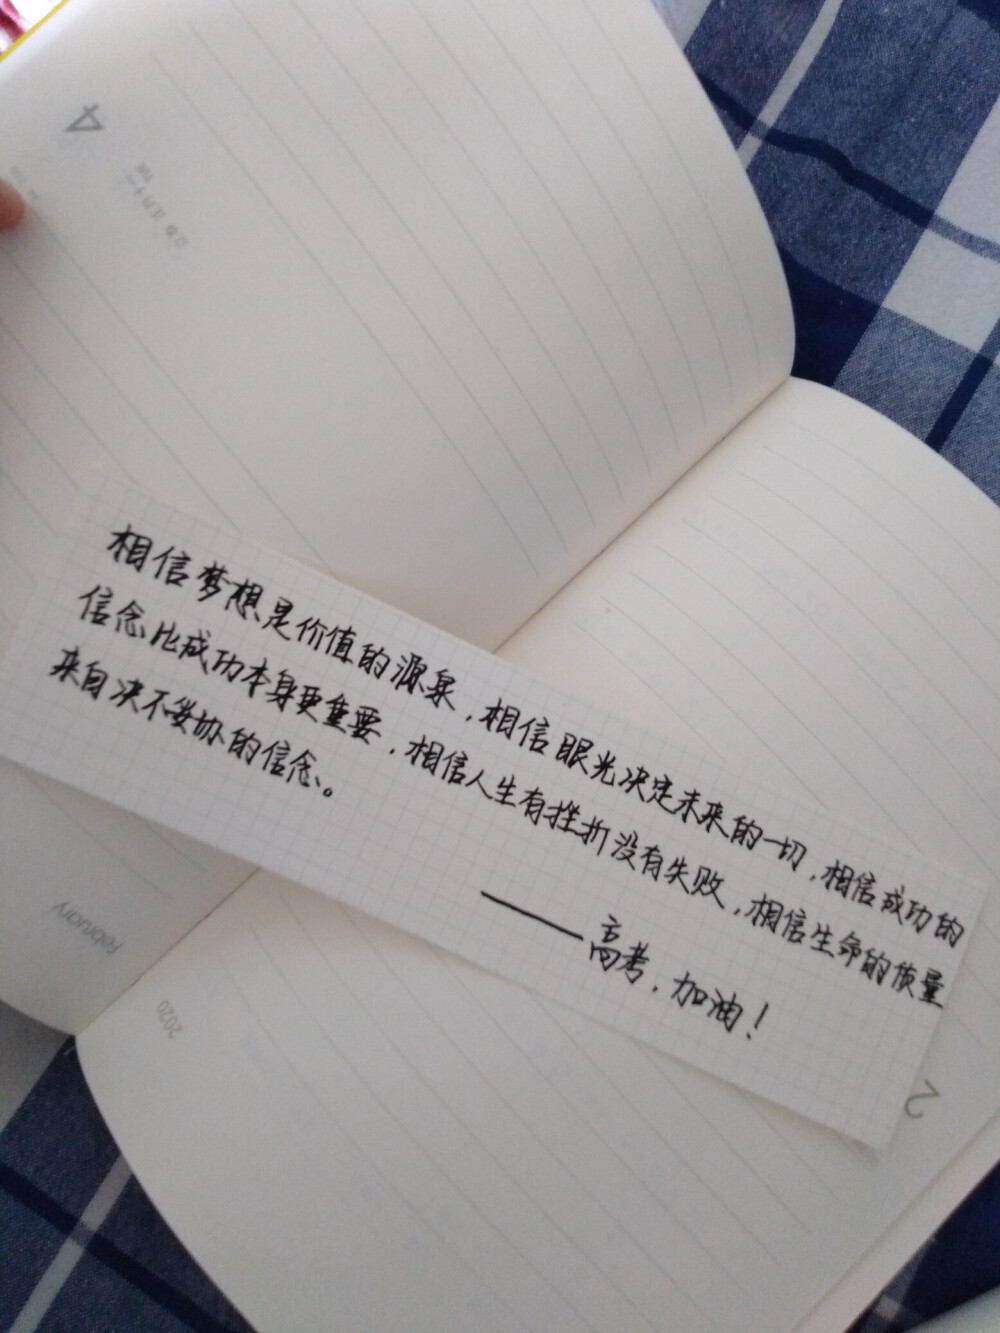 相信梦想是价值的源泉，相信眼光决定未来的一切，相信成功的
信念比成功本身更重要，相信人生有挫折没有失败，相信生命的质量
来自决不妥协的信念。
——高考，加油！
4
February
2020
2